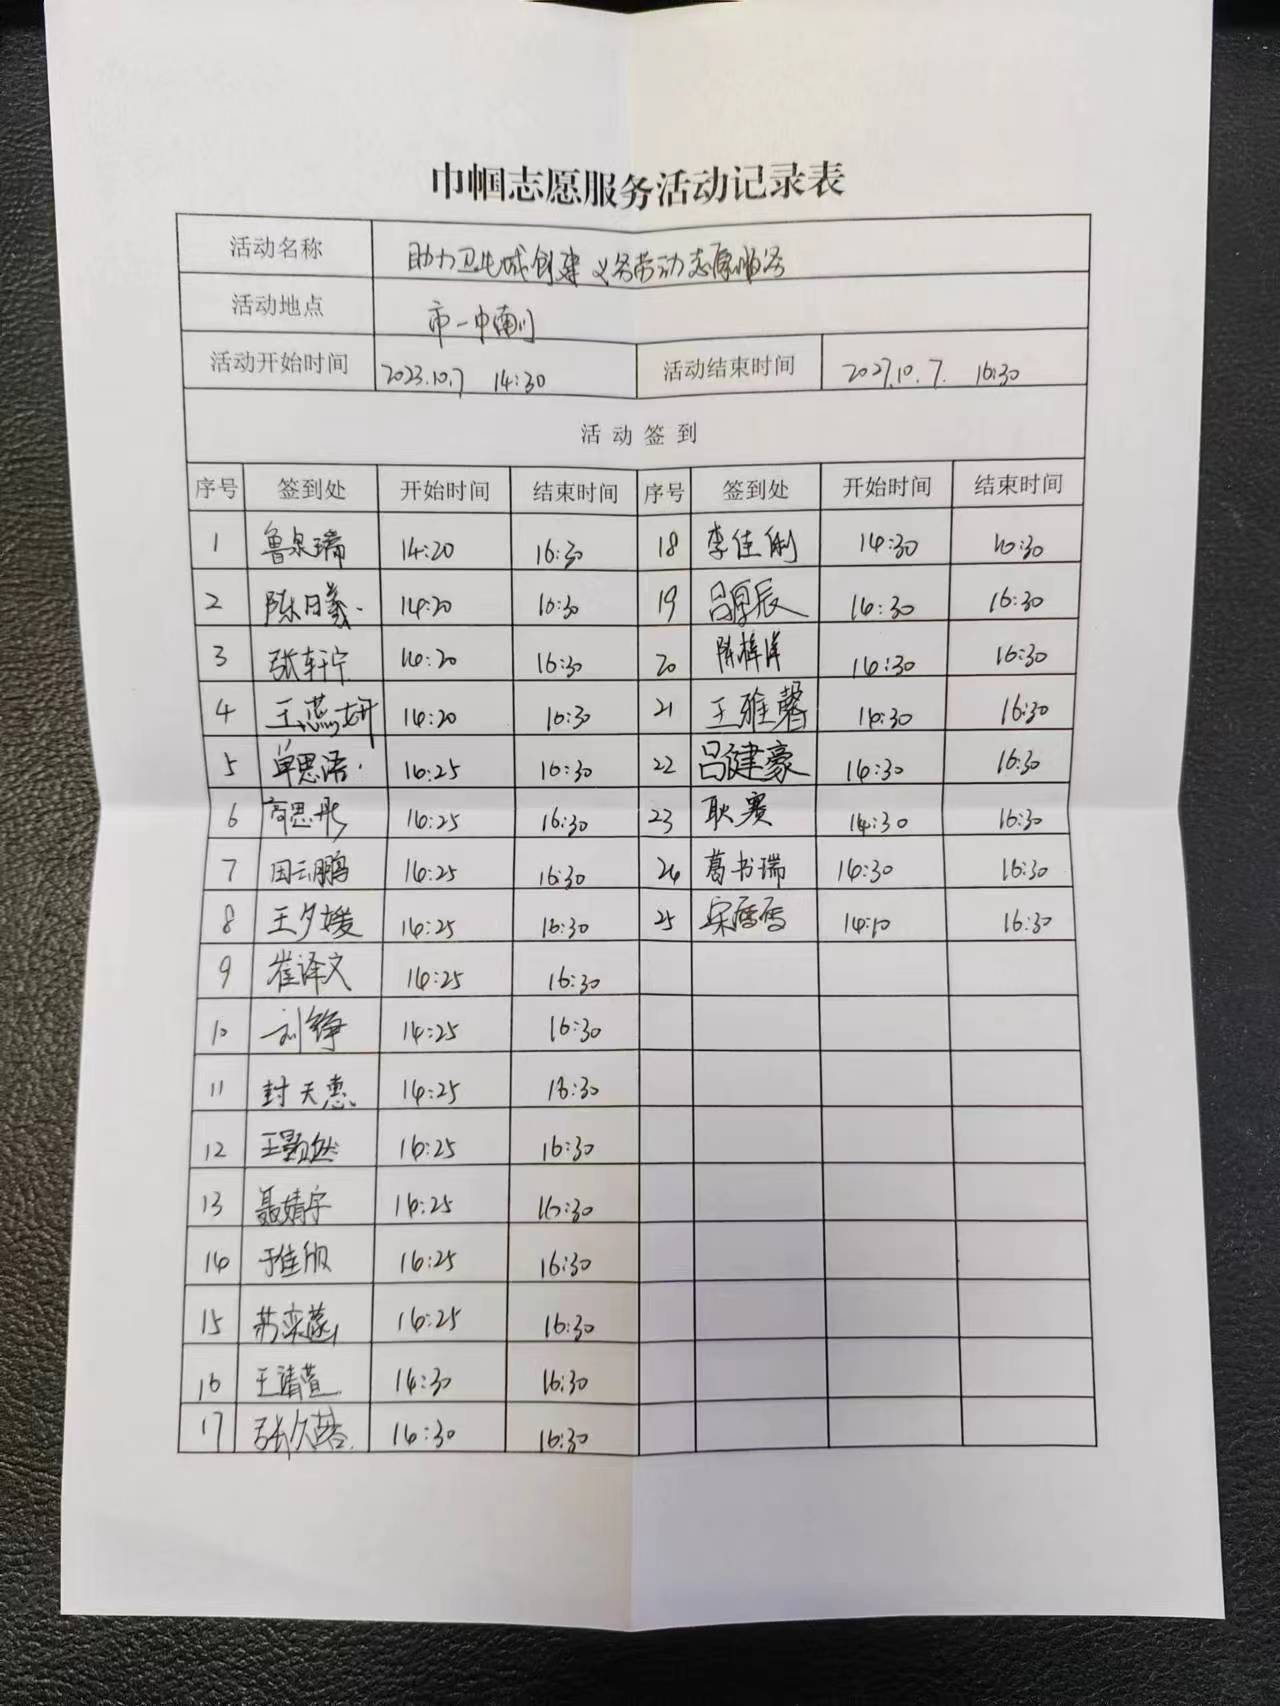 巾帼志愿服务活动记录表
活动名称 助力卫生城创建义务劳动志愿服务
活动地点 市一中南门
活动开始时间 2023.10.7 14:30 活动结束时间 2023.10.7. 16:30
活动签到
序号 签到处 开始时间 结束时间 序号 签到处 开始时间 结束时间
1 鲁泉瑞 14:20 16:30 18 李佳俐 14:30 16:30
2 陈日羲 14:20 16:30 19 吕原辰 14:30 16:30
3 张轩宁 14:20 16:30 20 陈梓洋 14:30 16:30
4 王燕妍 14:20 16:30 21 王雅馨 14:30 16:30
5 单思语 14:25 16:30 22 吕建豪 14:30 16:30
6 商思彤 14:25 16:30 23 耿赛 14:30 16:30
7 国云鹏 14:25 16:30 24 葛书瑞 14:30 16:30
8 王夕媛 14:25 16:30 25 宋 14:10 16:30
9 崔译文 14:25 16:30
10 刘铮 14:25 16:30
11 封天惠 14:25 16:30
12 王颢然 14:25 16:30
13 聂婧宇 14:25 16:30
14 于佳欣 14:25 16:30
15 苏 14:25 16:30
16 王清萱 14:30 16:30
17 张久 14:30 16:30